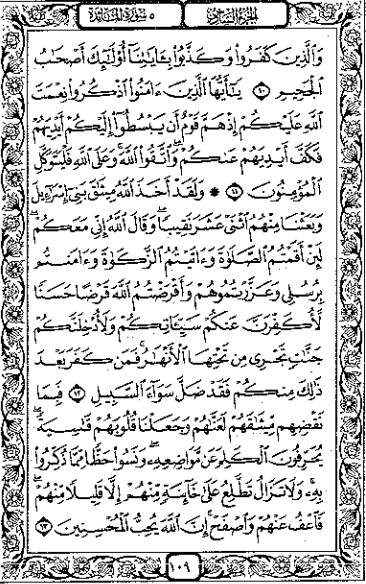 الجزء السادس
٥ سورة المائدة
وَٱلَّذِينَ كَفَرُوا۟ وَكَذَّبُوا۟ بِـَٔايَـٰتِنَآ أُو۟لَـٰٓئِكَ أَصْحَـٰبُ
ٱلْجَحِيمِ ١٠ يَـٰٓأَيُّهَا ٱلَّذِينَ ءَامَنُوا۟ ٱذْكُرُوا۟ نِعْمَتَ
ٱللَّهِ عَلَيْكُمْ إِذْ هَمَّ قَوْمٌ أَن يَبْسُطُوٓا۟ إِلَيْكُمْ أَيْدِيَهُمْ
فَكَفَّ أَيْدِيَهُمْ عَنكُمْ وَٱتَّقُوا۟ ٱللَّهَ وَعَلَى ٱللَّهِ فَلْيَتَوَكَّلِ
ٱلْمُؤْمِنُونَ ١١ * وَلَقَدْ أَخَذَ ٱللَّهُ مِيثَـٰقَ بَنِىٓ إِسْرَٰٓءِيلَ
وَبَعَثْنَا مِنْهُمُ ٱثْنَىْ عَشَرَ نَقِيبًا وَقَالَ ٱللَّهُ إِنِّى مَعَكُمْ
لَئِنْ أَقَمْتُمُ ٱلصَّلَوٰةَ وَءَاتَيْتُمُ ٱلزَّكَوٰةَ وَءَامَنتُم
بِرُسُلِى وَعَزَّرْتُمُوهُمْ وَأَقْرَضْتُمُ ٱللَّهَ قَرْضًا حَسَنًا
لَّأُكَفِّرَنَّ عَنكُمْ سَيِّـَٔاتِكُمْ وَلَأُدْخِلَنَّكُمْ
جَنَّـٰتٍ تَجْرِى مِن تَحْتِهَا ٱلْأَنْهَـٰرُ فَمَن كَفَرَ بَعْدَ
ذَٰلِكَ مِنكُمْ فَقَدْ ضَلَّ سَوَآءَ ٱلسَّبِيلِ ١٢ فَبِمَا
نَقْضِهِم مِّيثَـٰقَهُمْ لَعَنَّـٰهُمْ وَجَعَلْنَا قُلُوبَهُمْ قَـٰسِيَةً
يُحَرِّفُونَ ٱلْكَلِمَ عَن مَّوَاضِعِهِۦ وَنَسُوا۟ حَظًّا مِّمَّا ذُكِّرُوا۟
بِهِۦ وَلَا تَزَالُ تَطَّلِعُ عَلَىٰ خَآئِنَةٍ مِّنْهُمْ إِلَّا قَلِيلًا مِّنْهُمْ
فَٱعْفُ عَنْهُمْ وَٱصْفَحْ إِنَّ ٱللَّهَ يُحِبُّ ٱلْمُحْسِنِينَ ١٣
١٠٩